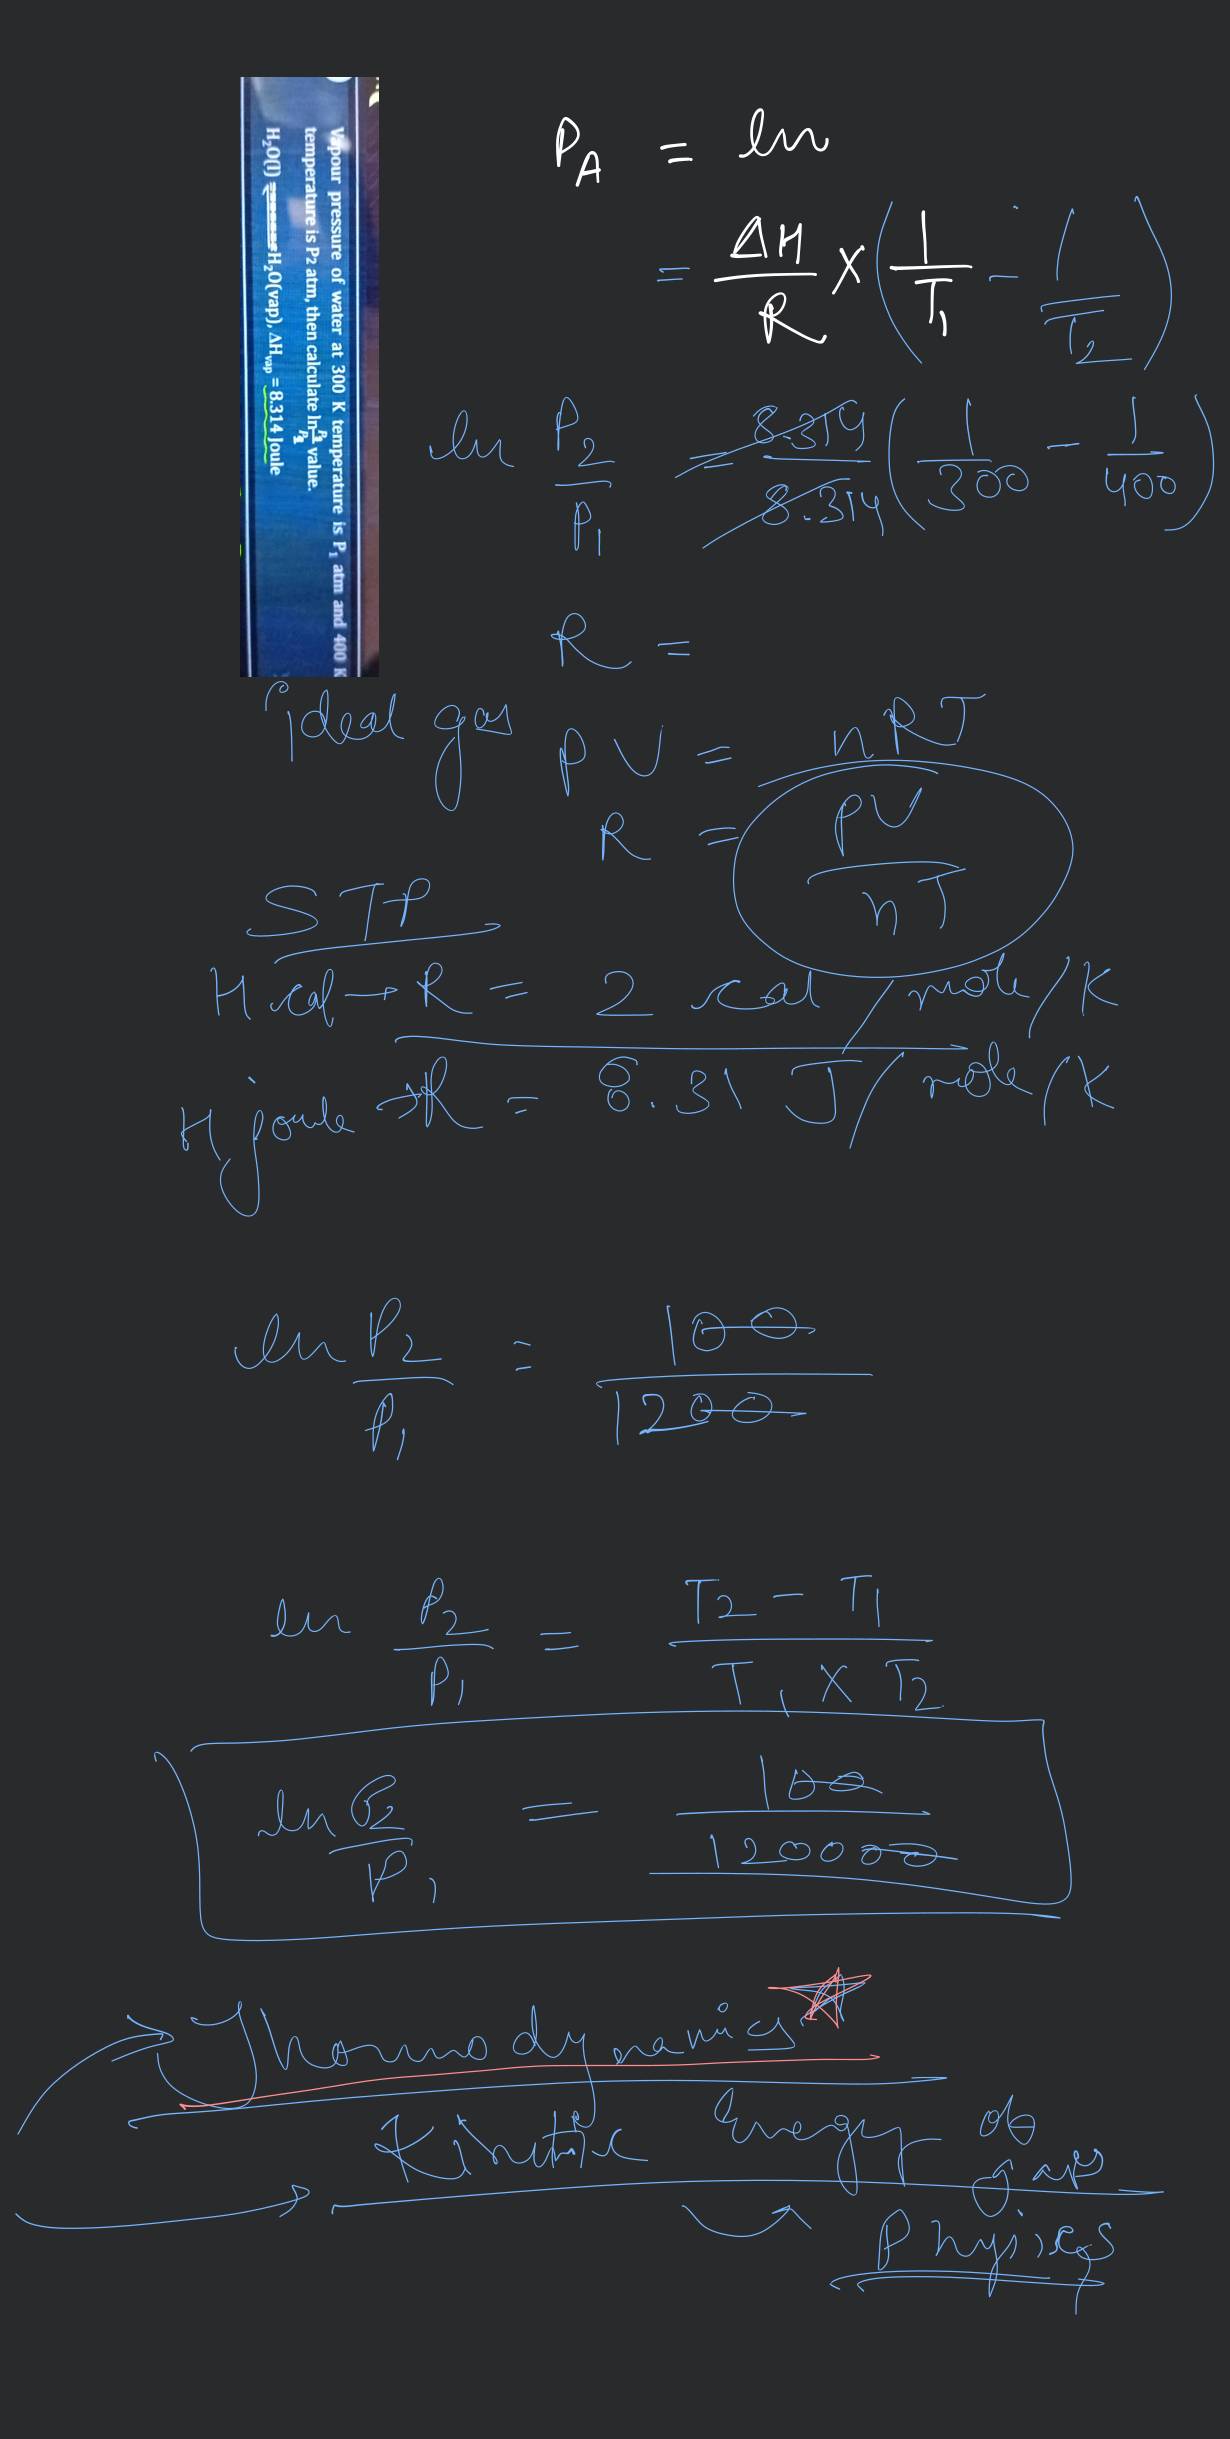 Vapour pressure of water at 300 K temperature is P₁ atm and 400 K
temperature is P2 atm, then calculate ln P₂/P₁ value.
H₂O(l) ⇌ H₂O(vap), ΔHvap = 8.314 Joule
P_A = ln
= ΔH/R × (1/T₁ - 1/T₂)
ln P₂/P₁ = 8.314/8.314 (1/300 - 1/400)
R =
ideal gas PV = nRT
R = PV/nT
STP
H cal → R = 2 cal/mole/K
H joule → R = 8.31 J/mole/K
ln P₂/P₁ = 100/1200
ln P₂/P₁ = T₂ - T₁/T₁ × T₂
ln P₂/P₁ = 100/120000
Thermodynamics
Kinetic Energy of
gas
Physics